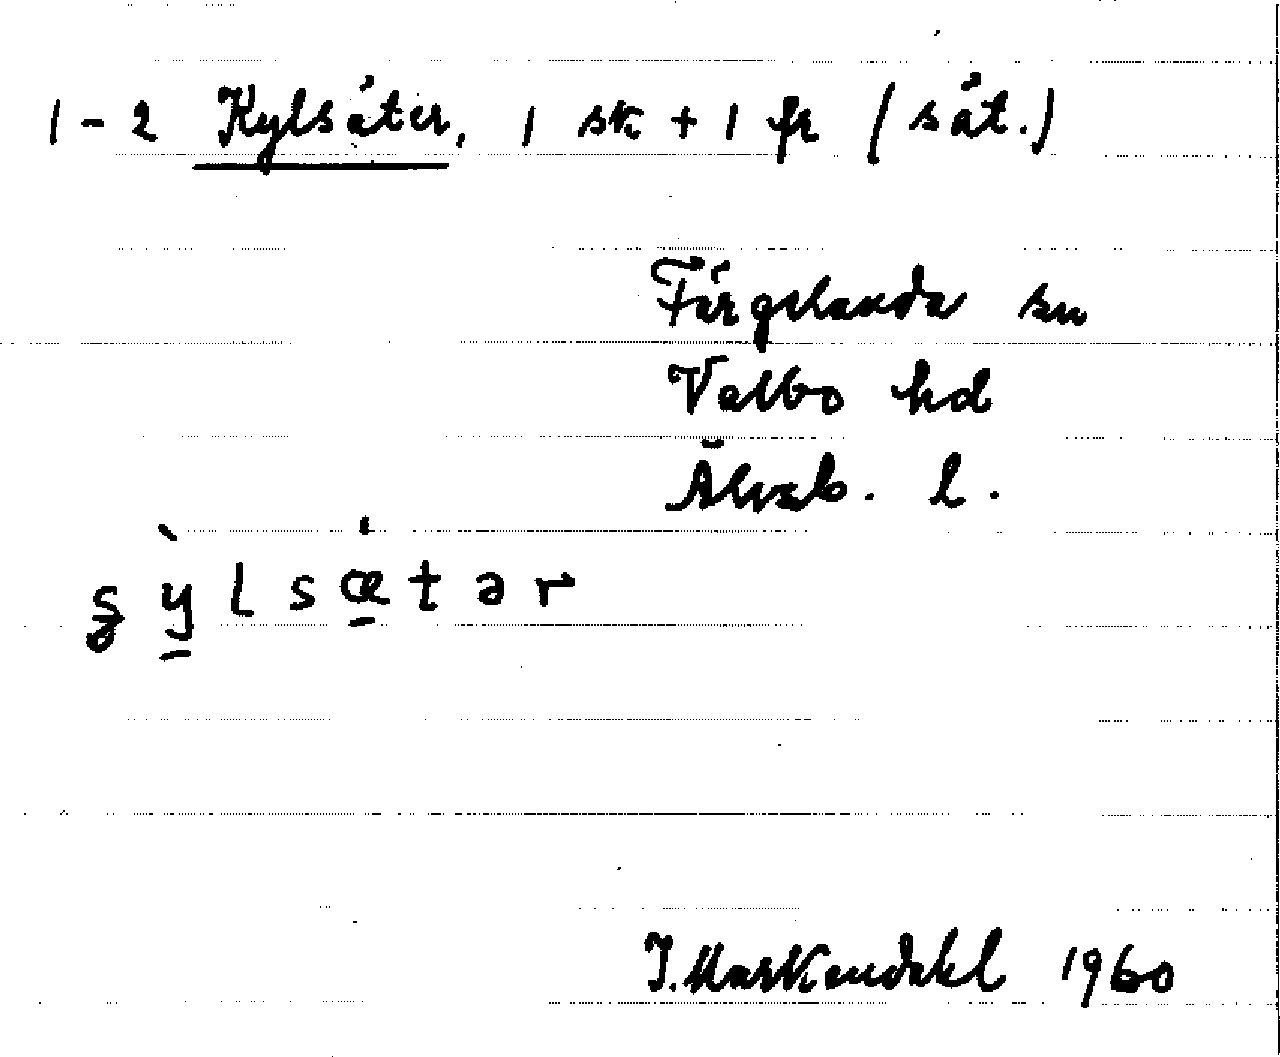 1-2 Kylsäter, 1 sk + 1 fr (sät.)
Färgelanda sn
Valbo hd
Älvsb. l.
I. Markendahl 1960